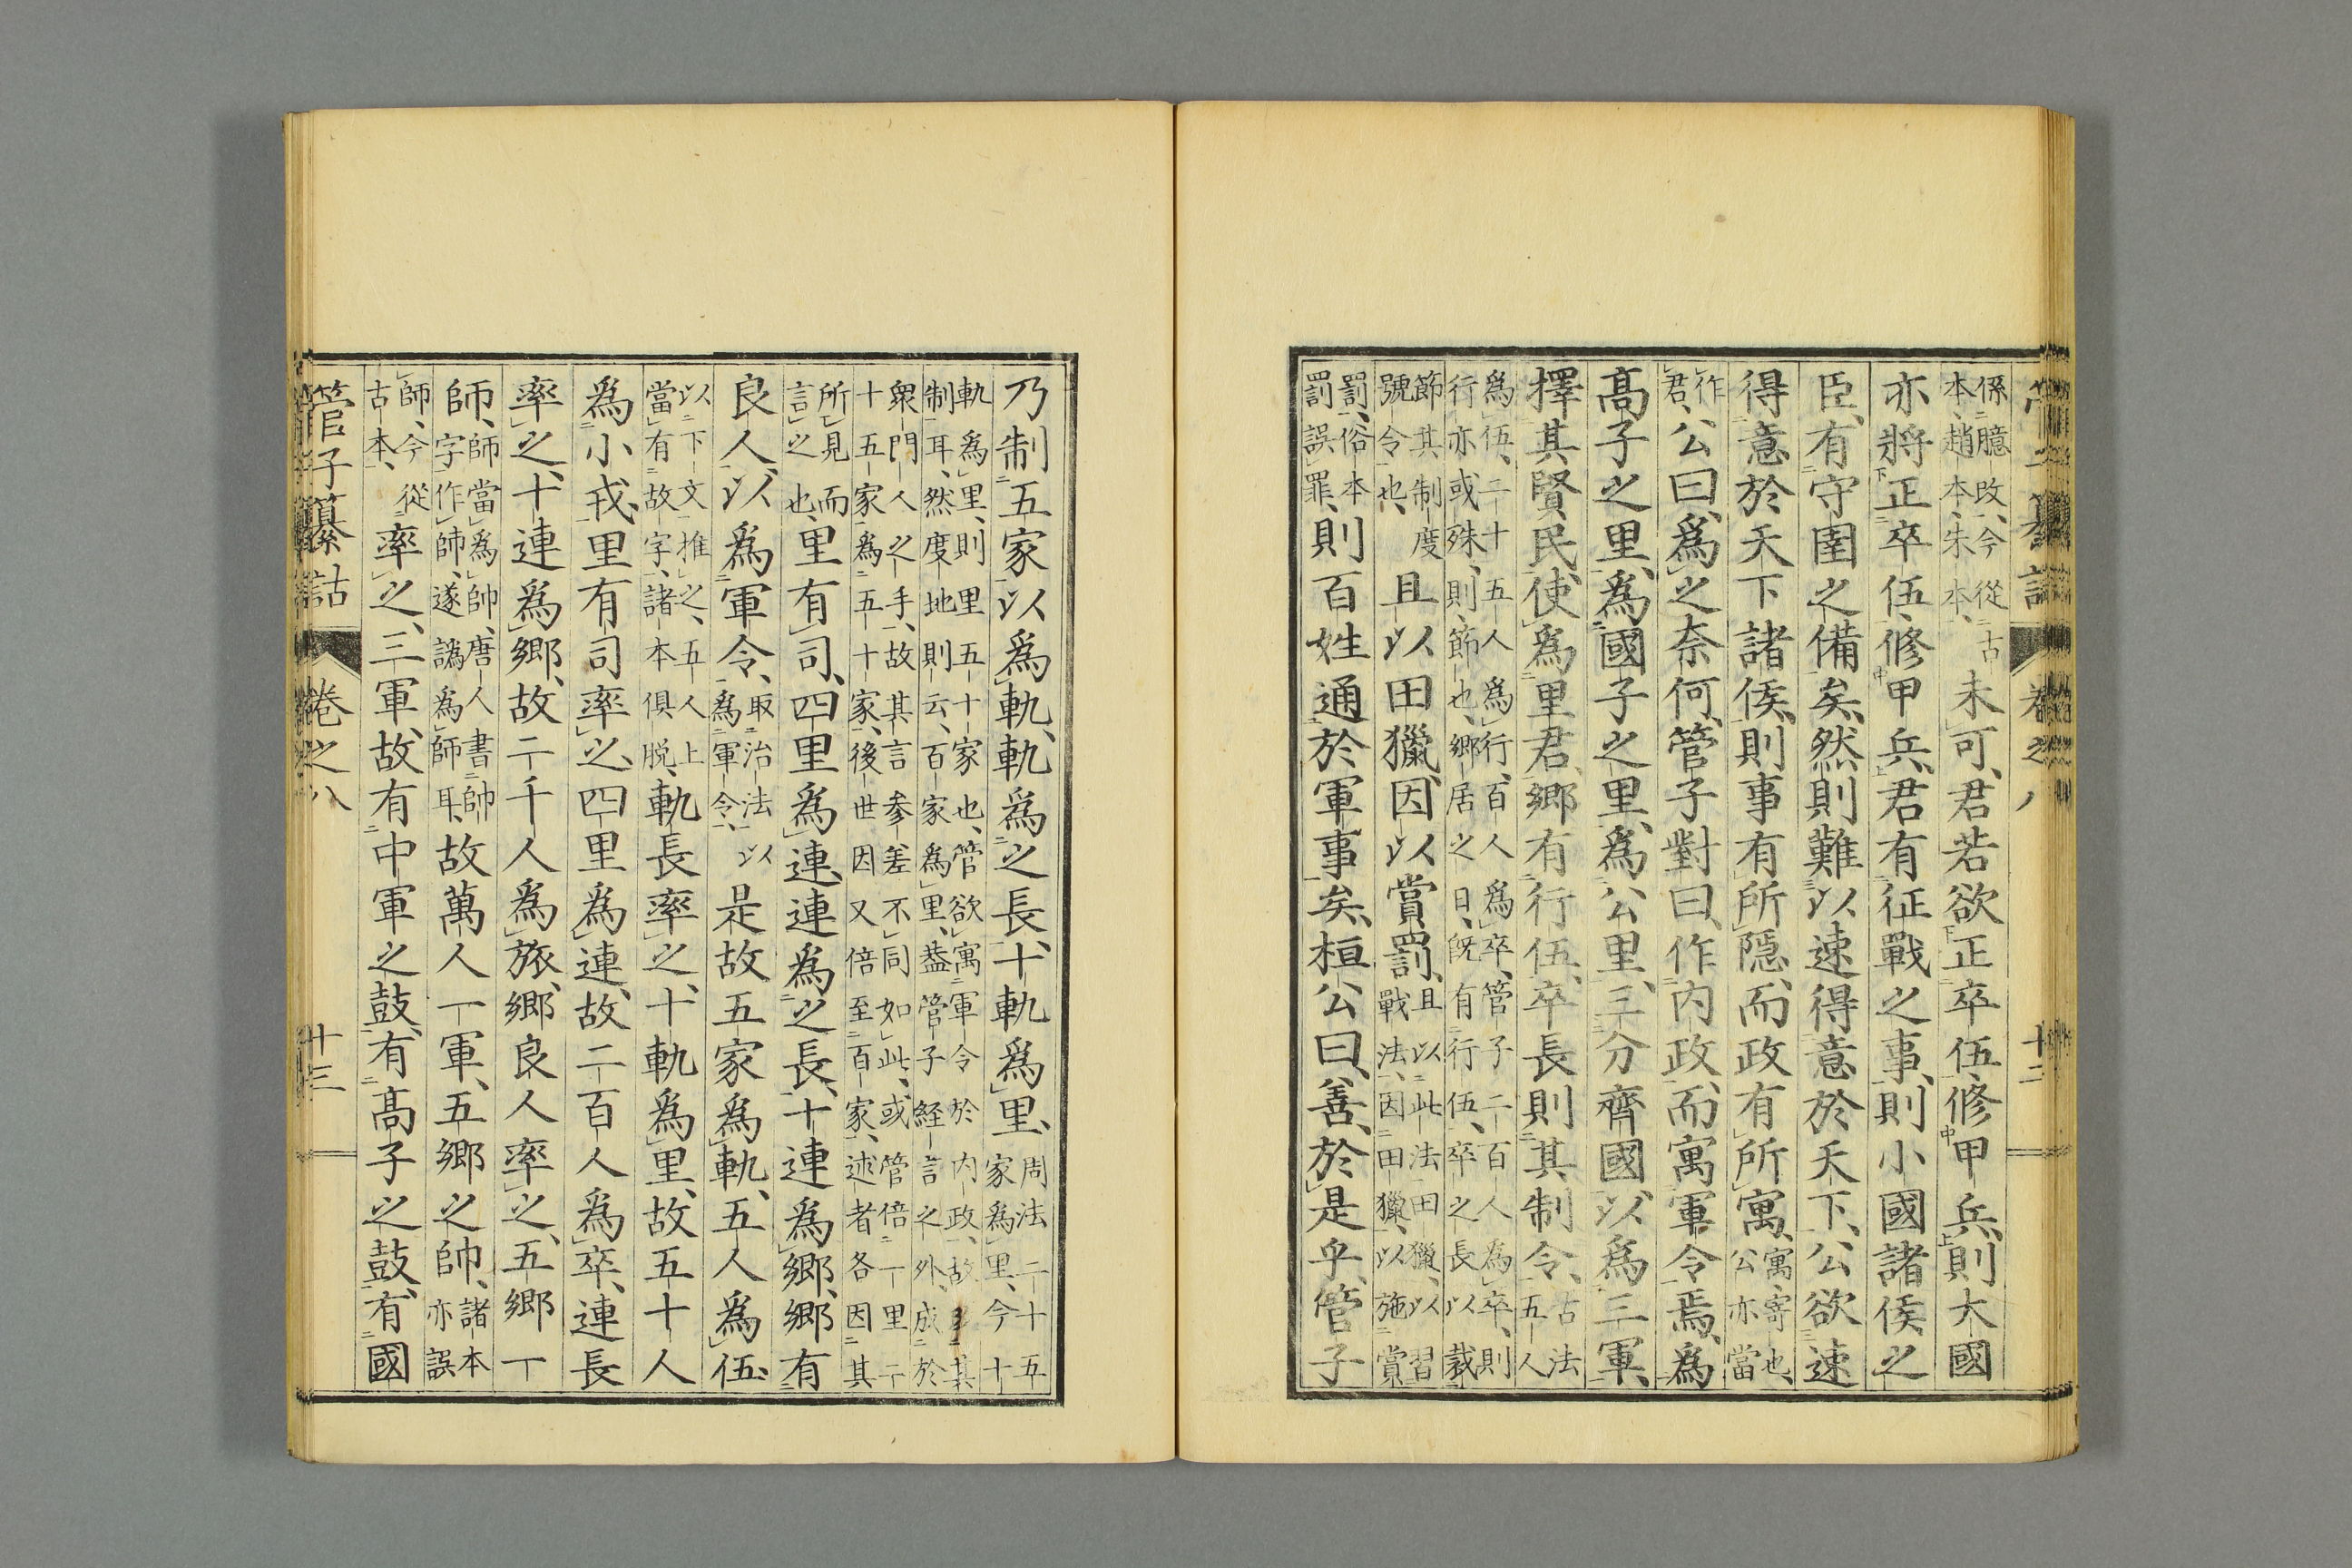 管子纂詁 卷之八 十二
係臆改、今從古本、趙本、朱本、未可、君若欲正卒伍、修甲兵、則大國
亦將正卒伍、修甲兵、君有征戰之事、則小國諸侯之
臣、有守圉之備矣、然則難以速得意於天下、公欲速
得意於天下諸侯、則事有所隱、而政有所寓、寓、寄也、公亦當
作君、公曰、爲之奈何、管子對曰、作內政、而寓軍令焉、爲
高子之里、爲國子之里、爲公里、三分齊國、以爲三軍、
擇其賢民、使爲里君、鄉有行伍、卒長則其制令、古法五人
爲伍、二十五人爲行、百人爲卒、管子二百人爲卒、則行亦或殊、則、節也、鄉居之日、旣有行伍、卒之長以裁
節其制度號令也、且以田獵、因以賞罰、且以此法田獵、以習戰法、因田獵、以施賞
罰、俗本罰誤罪、則百姓通於軍事矣、桓公曰、善、於是乎管子
乃制五家以爲軌、軌爲之長、十軌爲里、周法二十五家爲里、今十
軌爲里、則里五十家也、管欲寓軍令於內政、故
制耳、然度地則云、百家爲里、蓋管子經言之外、成於
衆門人之手、故其言參差不同如此、或管倍一里二
十五家爲五十家、後世因又倍至百家、述者各因其
所見而言之也、里有司、四里爲連、連爲之長、十連爲鄉、鄉有
良人、以爲軍令、取治法以爲軍令、是故五家爲軌、五人爲伍、
以下文推之、五人上當有故字、諸本俱脫、軌長率之、十軌爲里、故五十人
爲小戎、里有司率之、四里爲連、故二百人爲卒、連長
率之、十連爲鄉、故二千人爲旅、鄉良人率之、五鄉一
師、師當爲帥、唐人書帥字作師、遂譌爲師耳、故萬人一軍、五鄉之帥、諸本亦誤
師、今從古本、率之、三軍、故有中軍之鼓、有高子之鼓、有國
管子纂詁 卷之八 十三